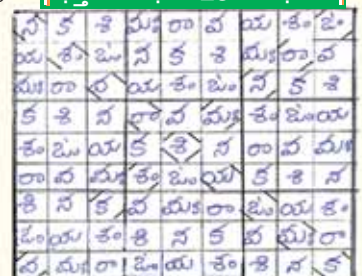 న క శి మః రా వ య శం ఓం
య శం ఓం న క శి మః రా వ
మః రా వ య శం ఓం న క శి
క శి న రా వ మః శం ఓం య
శం ఓం య క శి న రా వ మః
రా వ మః శం ఓం య క శి న
శి న క వ మః రా ఓం య శం
ఓం య శం శి న క వ మః రా
వ మః రా ఓం య శం శి న క